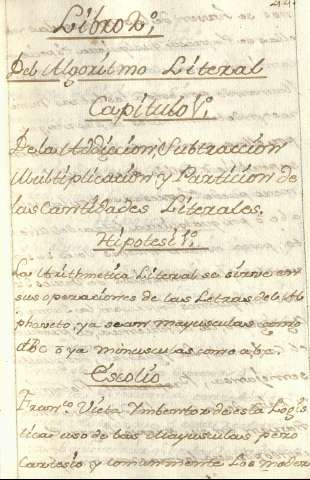 Libro 2º,
Del Algoritmo Literal
Capitulo 1º,
De la Addicion, Subtraccion
Multiplicacion y Particion de
las Cantidades Literales.
Hipotesi 1ª.
La Arithmetica Literal se sirve en
sus operaciones de las Letras del Al
phaveto; ya sean mayusculas como
ABC o ya minusculas como abc.
Escolio
Franco. Vieta Imbentor de esta Logis
tica uso de las Mayusculas pero
Cartesio y comunmente los moder